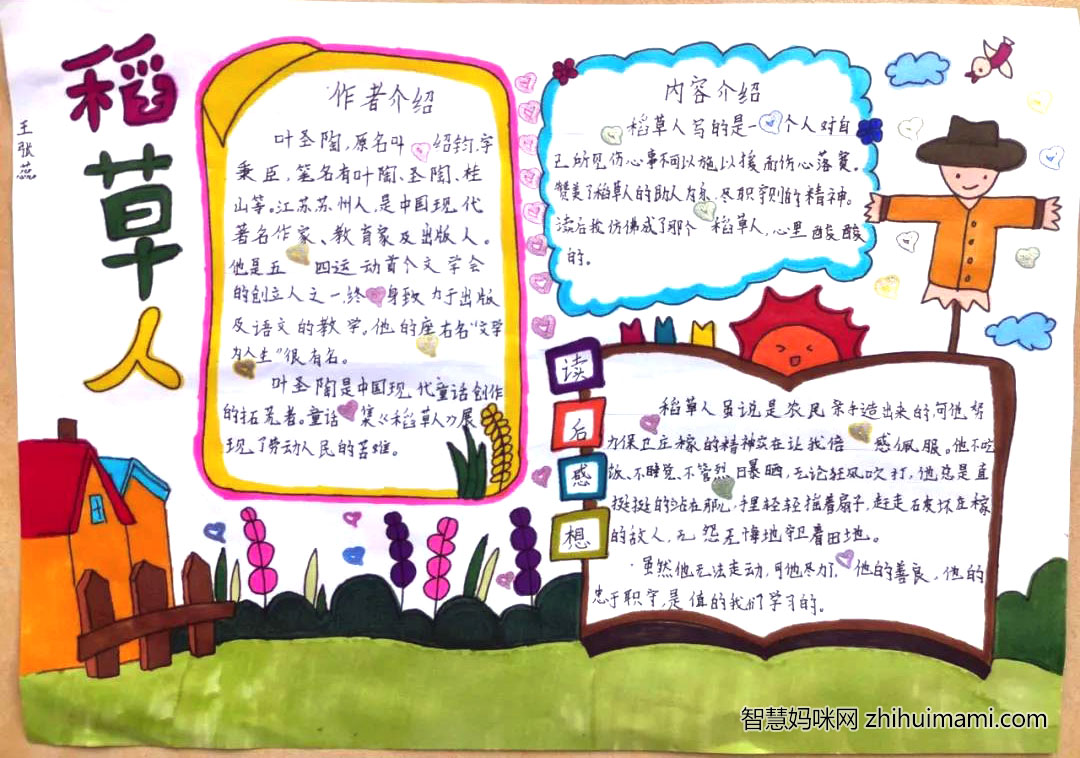 稻
草
人
王张蕊
作者介绍
叶圣陶,原名叶绍钧,字
秉臣,笔名有叶陶、圣陶、桂
山等。江苏苏州人,是中国现代
著名作家、教育家及出版人。
他是五四运动首个文学会
的创立人之一,终身致力于出版
及语文的教学,他的座右名“文学
为人生”很有名。
叶圣陶是中国现代童话创作
的拓荒者。童话集《稻草人》展
现了劳动人民的苦难。
内容介绍
稻草人写的是一个人对自
己所见伤心事不可以施以援而伤心落寞。
赞美了稻草人的助人为乐,尽职守则的精神。
读后我仿佛成了那个稻草人,心里酸酸
的。
读
后
感
想
稻草人虽说是农民亲手造出来的,可他努
力保卫庄稼的精神实在让我倍感佩服。他不吃
饭、不睡觉、不管烈日曝晒,无论狂风吹打,他总是直
挺挺的站在那儿,手里轻轻摇着扇子,赶走破坏庄稼
的敌人,无怨无悔地守卫着田地。
虽然他无法走动,可他尽力了,他的善良,他的
忠于职守,是值的我们学习的。
智慧妈咪网 zhihuimami.com